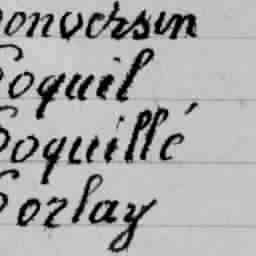 Conversin
Coquil
Coquillé
Corlay